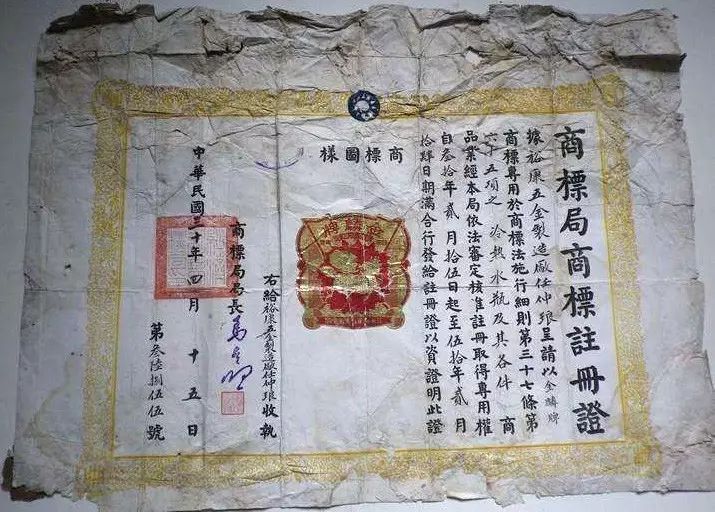 商標局商標註冊證
據裕康五金製造廠任仲琅呈請以金鱗牌
商標專用於商標法施行細則第三十七條第
六十五項之冷熱水瓶及其各件商
品業經本局依法審定核准註冊取得專用權
自叁拾年貳月拾伍日起至伍拾年貳月
拾肆日期滿合行發給註冊證以資證明此證
商標圖樣
右給裕康五金製造廠任仲琅收執
商標局局長
中華民國三十年四月十五日
第叁陸捌伍伍號